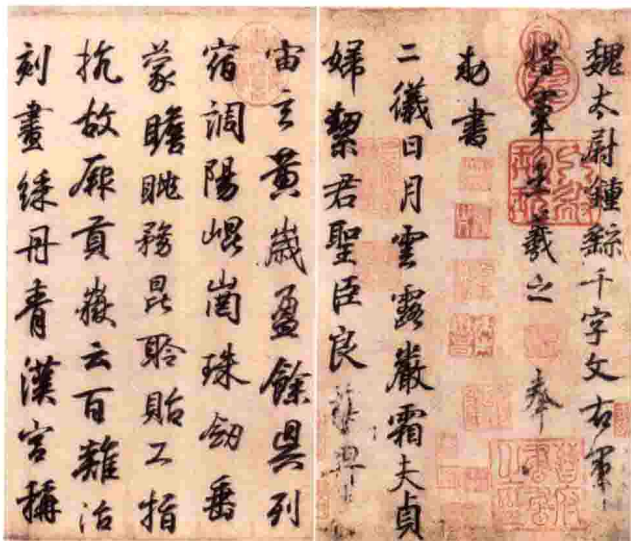 魏太尉鍾繇千字文右軍
將軍王羲之 奉
勑書
二儀日月雲露嚴霜夫貞
婦絜君聖臣良
宙玄黃歲盈餘具列
宿調陽崐崗珠劒垂
蒙瞻眺務昆聆貽工指
抗故厥貢嶽云百難治
刻畫綵丹青漢宮稱